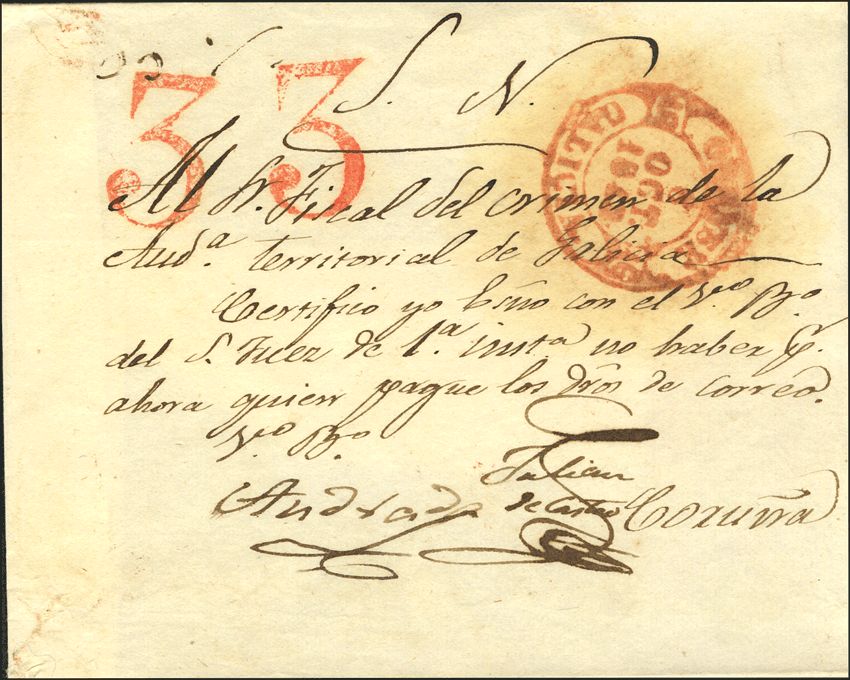 33
S. N.
Al Sr. Fiscal del crimen de la
Aud.ª territorial de Galicia
Certifico yo Esno con el V.to B.o
del S. Juez de 1.ª insta no haber p.
ahora quien pague los dros de correo.
V.to B.o
Andrade
Julian
de Castro
Coruña
OCT